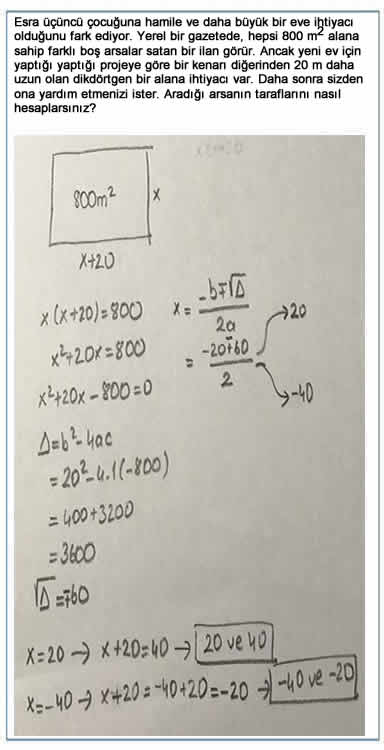 Esra üçüncü çocuğuna hamile ve daha büyük bir eve ihtiyacı
olduğunu fark ediyor. Yerel bir gazetede, hepsi 800 m² alana
sahip farklı boş arsalar satan bir ilan görür. Ancak yeni ev için
yaptığı yaptığı projeye göre bir kenarı diğerinden 20 m daha
uzun olan dikdörtgen bir alana ihtiyacı var. Daha sonra sizden
ona yardım etmenizi ister. Aradığı arsanın taraflarını nasıl
hesaplarsınız?
800m²
x
x+20
x(x+20)=800
x²+20x=800
x²+20x-800=0
Δ=b²-4ac
=20²-4.1(-800)
=400+3200
=3600
√Δ=∓60
x= -b∓√Δ / 2a
= -20∓60 / 2
→20
→-40
x=20 → x+20=40 → 20 ve 40
x=-40 → x+20=-40+20=-20 → -40 ve -20